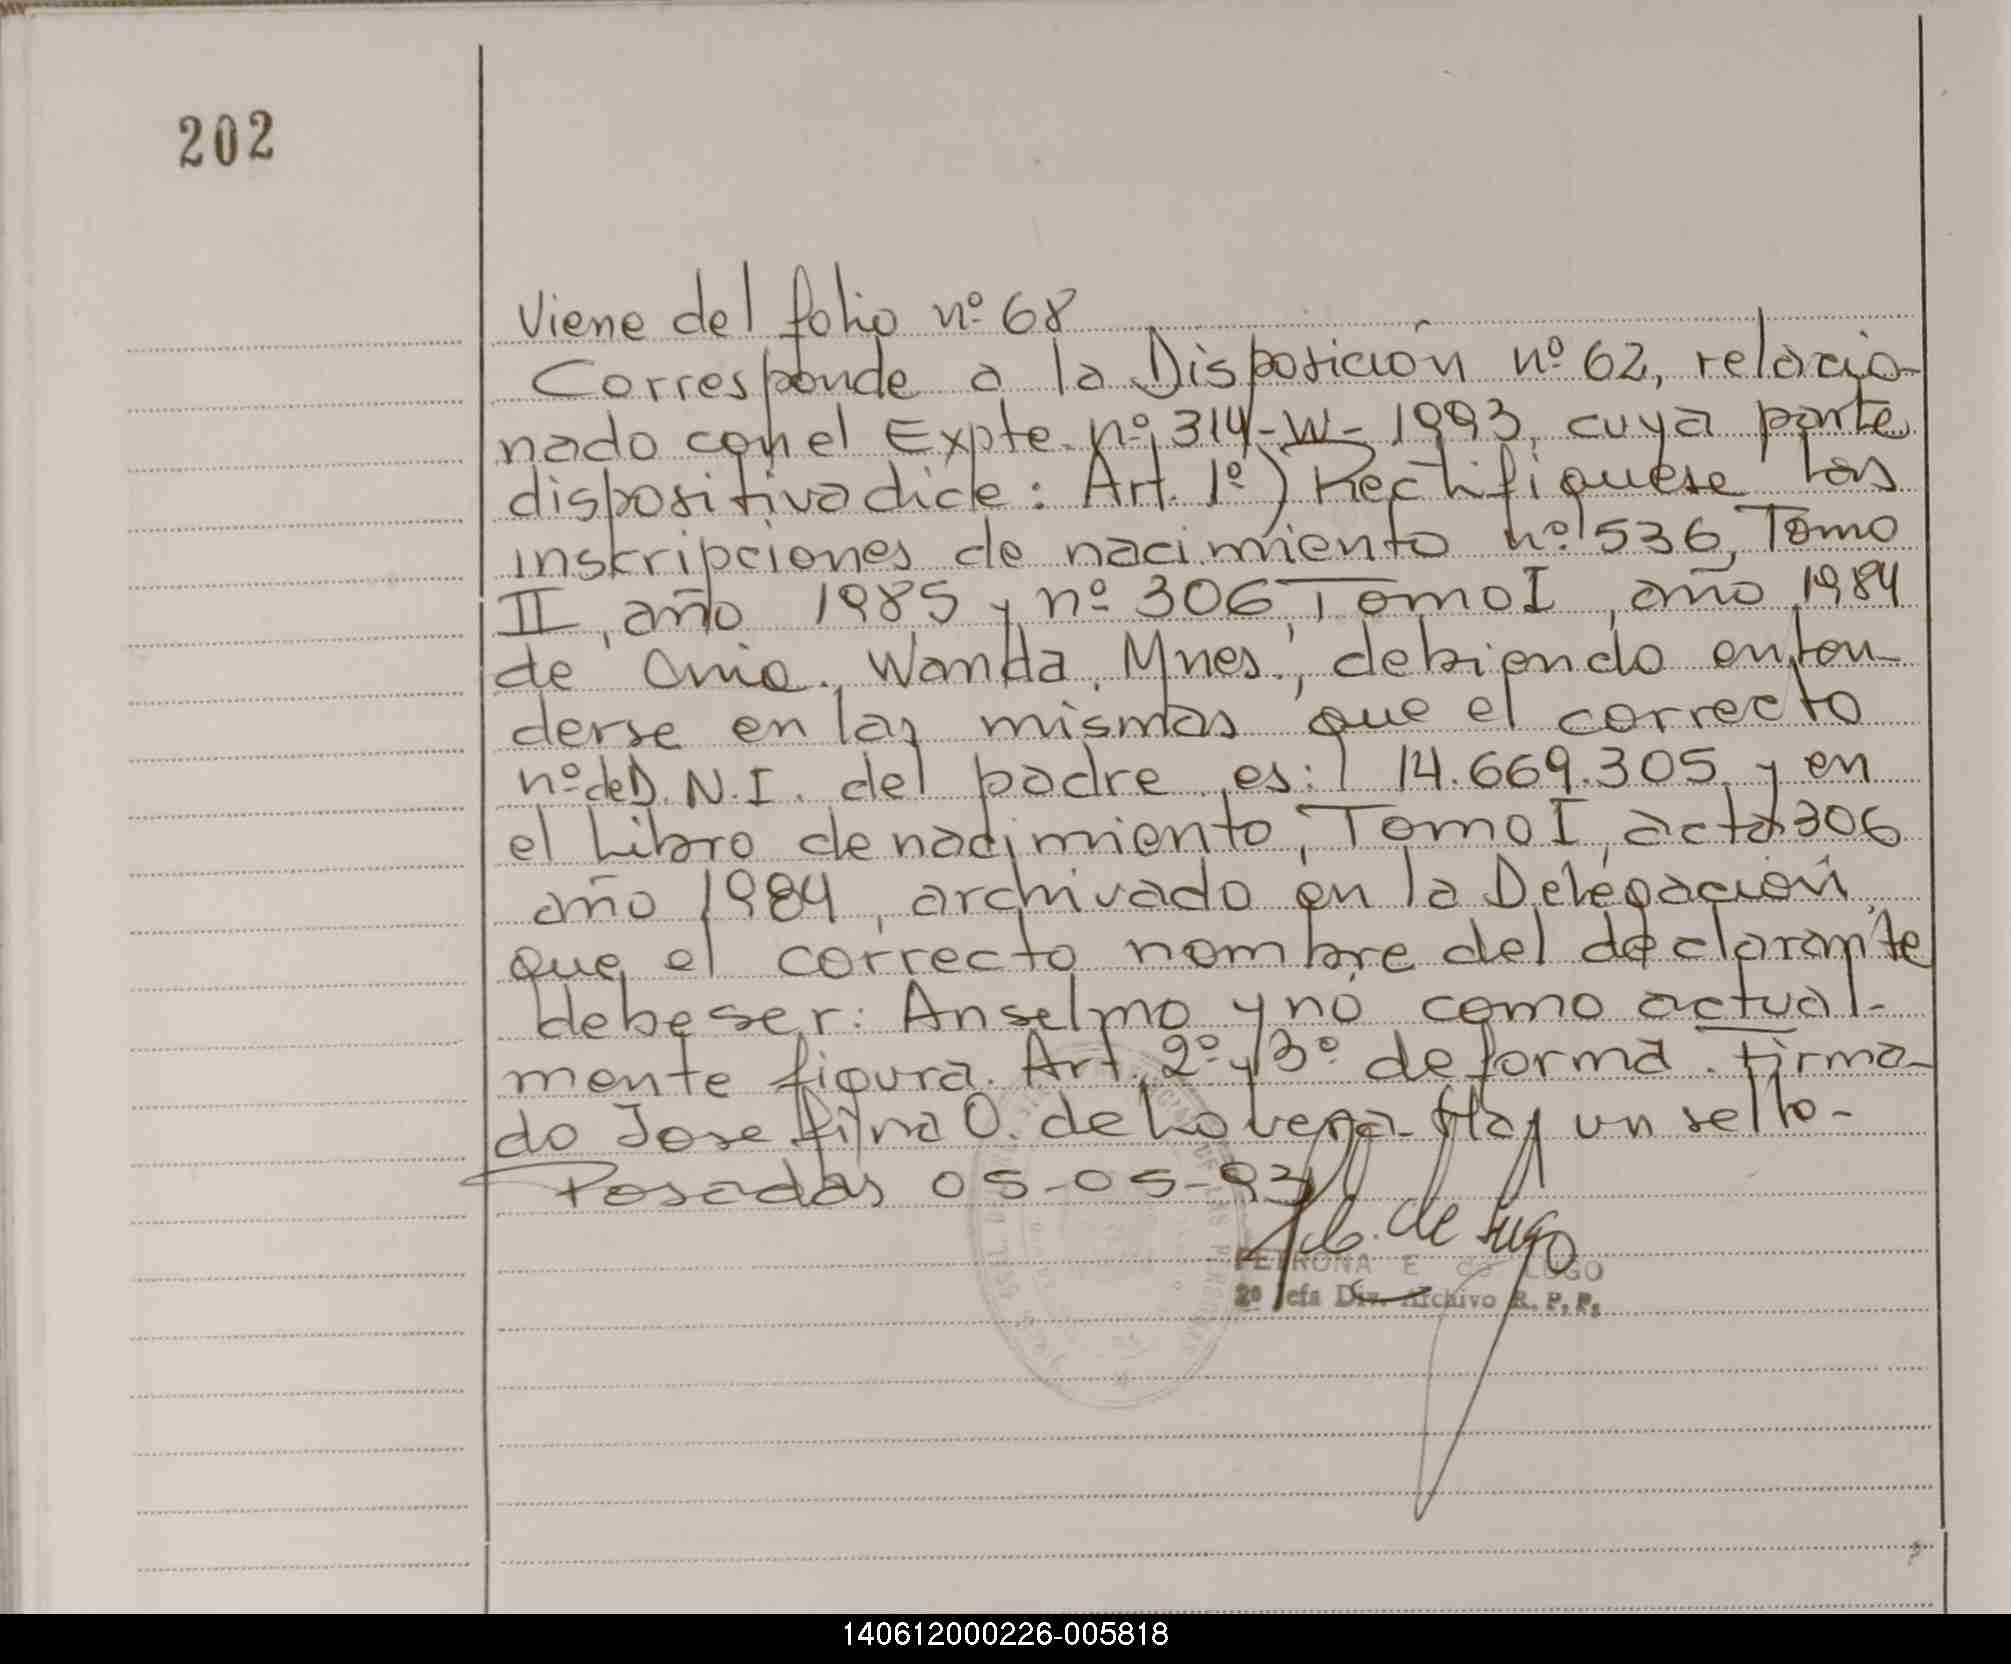 202
Viene del folio nº 68
Corresponde a la Disposición nº 62, relacio-
nado con el Expte. nº 314-W-1993, cuya parte
dispositiva dice: Art. 1º) Rectifiquese las
inskripciones de nacimiento nº 536, Tomo
II, año 1985 y nº 306, Tomo I, año 1984
de Wanda, Mnes., debiendo enten-
derse en las mismas que el correcto
nº de D.N.I. del padre es: 14.669.305 y en
el Libro de nacimiento, Tomo I, acta 306
año 1984, archivado en la Delegación,
que el correcto nombre del declarante
debe ser: Anselmo y no como actual-
mente figura. Art. 2º y 3º de forma. Firma-
do Josefina O. de Hay un sello-
Posadas 05-05-93
de Lugo
PETRONA E de LUGO
2º Jefa Div. Archivo R. P. P.
140612000226-005818